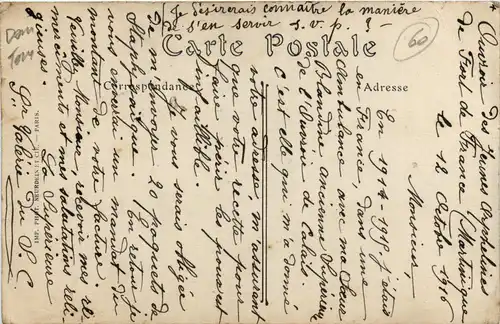 Ouvroir des jeunes Orphelines
de Fort de France (Martinique
le 12 Octobre 1916
Monsieur,
En 1914-1915 j'étais
en France, dans une
Ambulance avec ma Sœur
Blandine ancienne Supérieure
de l'Ouvroir de Calais.
c'est elle qui m'a donné
votre adresse, m'assurant
que votre recette pour
faire périr les poux est
infaillible.
Je vous serais obligée
de m'envoyer 20 paquets de
Staphysaigre. En retour je
vous enverrai un mandat du
montant de votre facture.
Veuillez Monsieur, recevoir mes re-
merciements et mes salutations reli-
gieuses.
La Supérieure
Sr Valérie du S. C.
Je désirerais connaître la manière
de s'en servir s.v.p. ?
Carte Postale
Correspondance
Adresse
60
Dom
IMP. PHOT. NEURDEIN ET CIE. - PARIS.